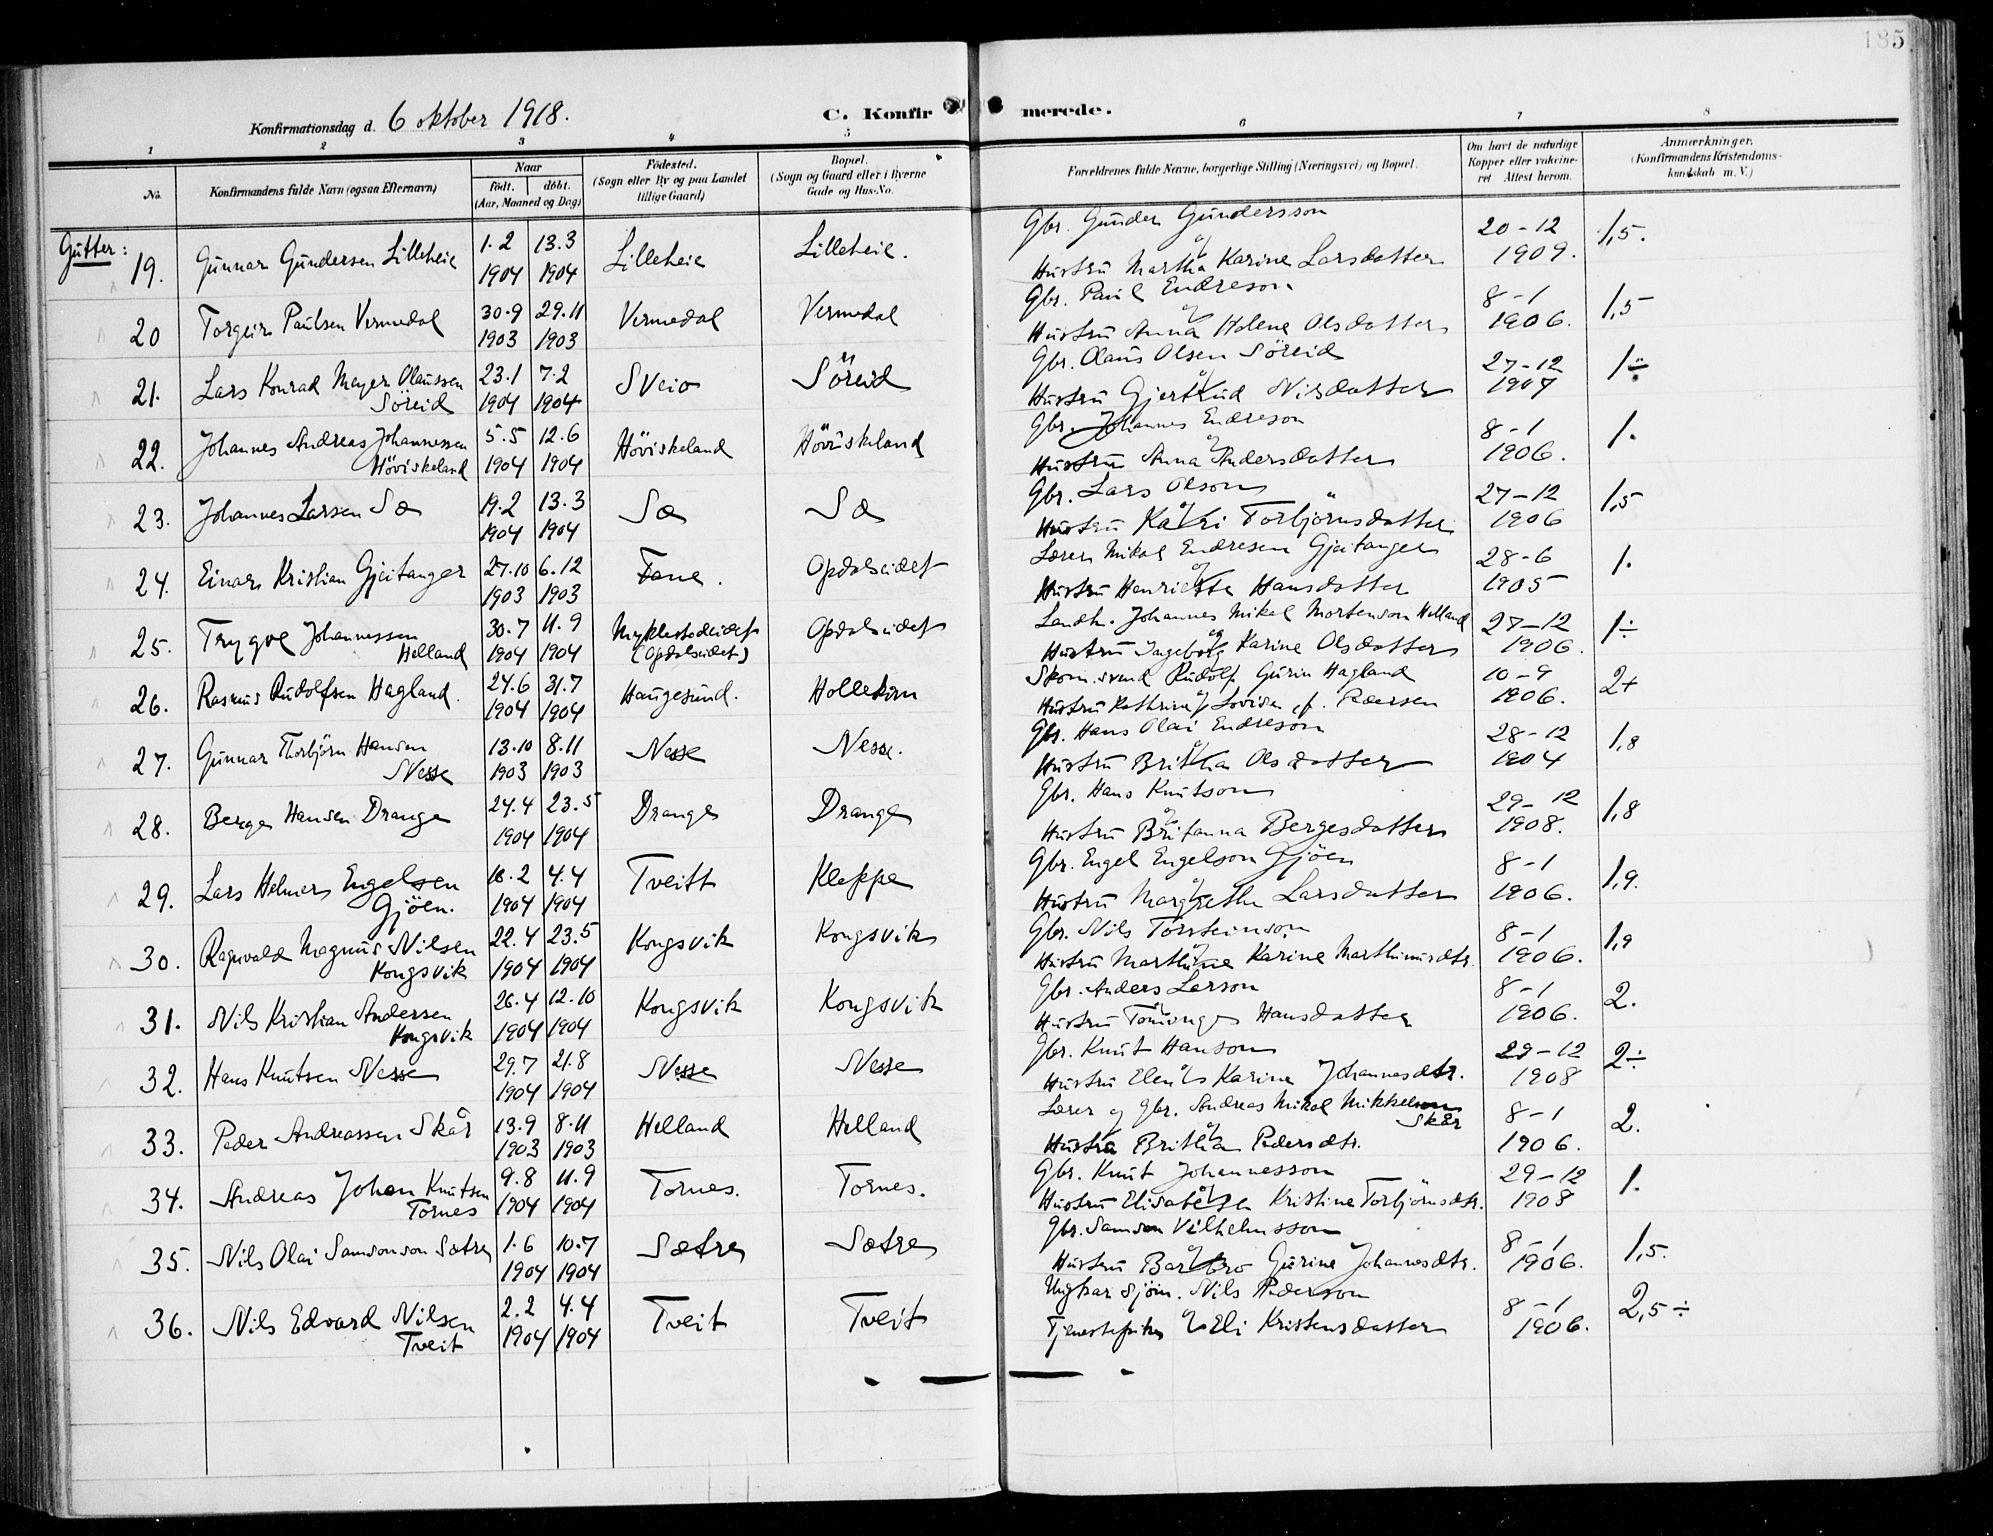 185
Konfirmationsdag d. 6 oktober 1918.
C. Konfirmerede.
1 2 3 4 5 6 7 8
No.
Konfirmandens fulde Navn (ogsaa Efternavn)
Naar
født. døbt.
(Aar, Maaned og Dag)
Fødested.
(Sogn eller By og paa Landet
tillige Gaard)
Bopæl.
(Sogn og Gaard eller i Byerne
Gade og Hus-No.
Forældrenes fulde Navne, borgerlige Stilling (Næringsvei) og Bopæl.
Om havt de naturlige
Kopper eller vakcine-
ret. Attest herom.
Anmærkninger.
(Konfirmandens Kristendoms-
kundskab m. V.)
Gutter:
19. Gunnar Gundersen Lilleheie 1.2 1904 13.3 1904 Lilleheie Lilleheie.
Gbr. Gunder Gundersson
og Hustru Martha Karine Larsdatter 20-12 1909. 1,5.
20 Torgeir Paulsen Vermedal 30.9 1903 29.11 1903 Vermedal Vermedal
Gbr. Paul Endreson
og Hustru Anna Helene Olsdatter 8-1 1906. 1,5
21. Lars Konrad Meyer Olaussen Söreid 23.1 1904 7.2 1904 Sveio Söreid
Gbr. Olaus Olsen Söreid
og Hustru Gjertrud Nilsdatter 27-12 1907 1÷
22. Johannes Andreas Johannessen Höviskeland 5.5 1904 12.6 1904 Höviskeland Höviskeland
Gbr. Johannes Endreson
og Hustru Anna Andersdatter 8-1 1906. 1.
23. Johannes Larsen Sæ 19.2 1904 13.3 1904 Sæ Sæ
Gbr. Lars Olson
og Hustru Kari Torbjörnsdatter 27-12 1906 1,5
24. Einar Kristian Gjeitanger 27.10 1903 6.12 1903 Fane. Opdalseidet
Lærer Mikal Endresen Gjeitanger
og Hustru Henriette Hansdatter 28-6 1905 1.
25. Trygve Johannessen Helland 30.7 1904 11.9 1904 Myklestadeidet (Opdalseidet) Opdalseidet
Landh. Johannes Mikal Mortenson Helland
og Hustru Ingeborg Karine Olsdatter 27-12 1906. 1÷
26. Rasmus Rudolfsen Hagland. 24.6 1904 31.7 1904 Haugesund.
Skom. svend Rudolf Gurin Hagland
og Hustru Kathrine Lovise f. Pedersen 10-9 1906. 2+
27. Gunnar Thorbjörn Hansen Nesse 13.10 1903 8.11 1903 Nesse Nesse.
Gbr. Hans Olai Endreson
og Hustru Britha Olsdatter 28-12 1904 1,8
28. Berge Hansen Drange 24.4 1904 23.5 1904 Drange Drange
Gbr. Hans Knutson
og Hustru Britanna Bergesdatter 29-12 1908. 1,8
29. Lars Helmer Engelsen Gjöen. 16.2 1904 4.4 1904 Tveitt Kleppe
Gbr. Engel Engelson Gjöen
og Hustru Margrethe Larsdatter 8-1 1906. 1,9.
30. Ragnvald Magnus Nilsen Kongsvik 22.4 1904 23.5 1904 Kongsvik Kongsvik
Gbr. Nils Torsteinson
og Hustru Marthine Karine Marthinusdtr. 8-1 1906. 1,9
31. Nils Kristian Andersen Kongsvik 26.4 1904 12.10 1904 Kongsvik Kongsvik
Gbr. Anders Larson
og Hustru Hansdatter 8-1 1906. 2.
32. Hans Knutsen Nesse 29.7 1904 21.8 1904 Nesse Nesse
Gbr. Knut Hanson
og Hustru Karine Johannesdtr. 29-12 1908 2÷
33. Peder Andreassen Skår 13.9 1903 8.11 1903 Helland Helland
Lærer og Gbr. Andreas Mikal Mikkelson Skår
og Hustru Britha Pedersdtr. 8-1 1906. 2.
34. Andreas Johan Knutsen Tornes 9.8 1904 11.9 1904 Tornes. Tornes.
Gbr. Knut Johannesson
og Hustru Elisabeth Kristine Torbjörnsdtr. 29-12 1908 1.
35. Nils Olai Samsonson Sætre 1.6 1904 10.7 1904 Sætre Sætre
Gbr. Samson Vilhelmsson
og Hustru Barbro Gurine Johannesdtr. 8-1 1906. 1,5.
36. Nils Edvard Nilsen Tveit 2.2 1904 4.4 1904 Tveit Tveit
Ungkar sjöm. Nils Pederson
og Tjenestepike Eli Kristensdatter 8-1 1906. 2,5÷